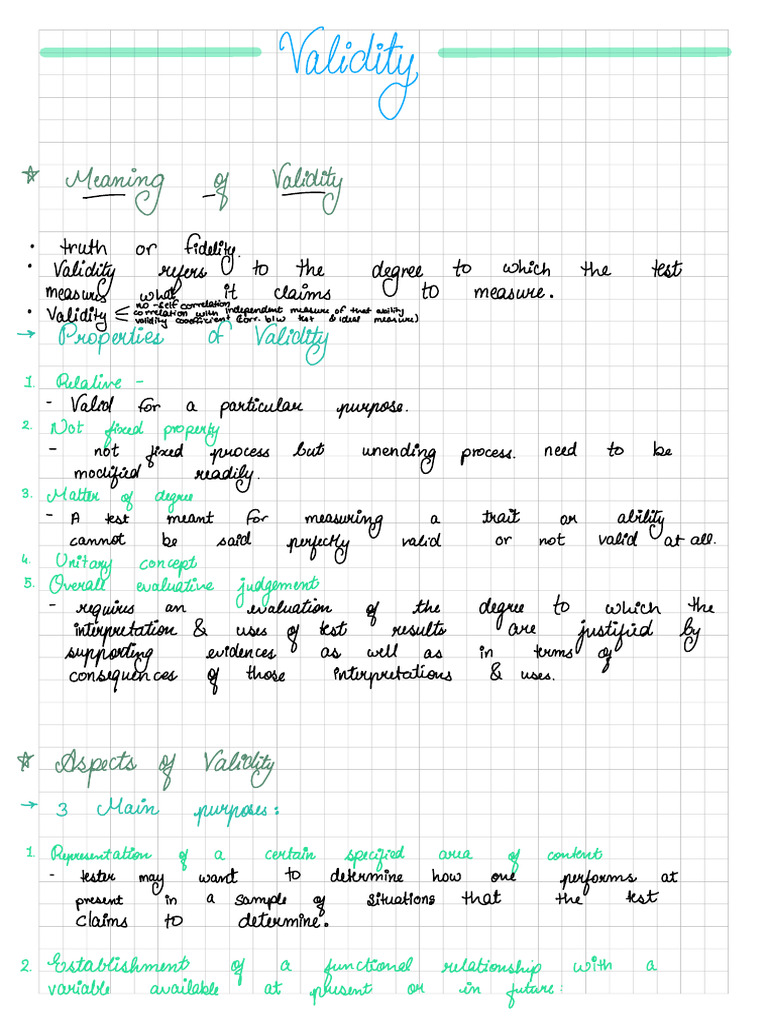 Validity
☆ Meaning of Validity
• truth or fidelity.
• Validity refers to the degree to which the test
measures what it claims to measure.
• Validity < no -self correlation
correlation with independent measure of that ability
validity coefficient (corr. b/w test & ideal measure)
→ Properties of Validity
1. Relative -
- Valid for a particular purpose.
2. Not fixed property
- not fixed process but unending process. need to be
modified readily.
3. Matter of degree
- A test meant for measuring a trait or ability
cannot be said perfectly valid or not valid at all.
4. Unitary concept
5. Overall evaluative judgement
- requires an evaluation of the degree to which the
interpretation & uses of test results are justified by
supporting evidences as well as in terms of
consequences of those interpretations & uses.
☆ Aspects of Validity
→ 3 Main purposes:
1. Representation of a certain specified area of content
- tester may want to determine how one performs at
present in a sample of situations that the test
claims to determine.
2. Establishment of a functional relationship with a
variable available at present or in future: